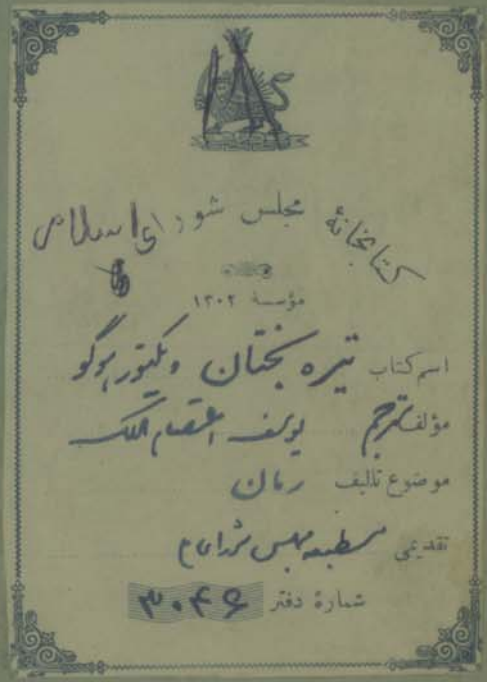 کتابخانهٔ مجلس شورای اسلامی
مؤسسهٔ ۱۳۰۲
اسم کتاب تیره بختان ویکتور هوگو
مؤلف مترجم یوسف اعتصام الملک
موضوع تألیف رمان
تقدیمی مطبعه مجلس شورای
شمارهٔ دفتر ۳۰۴۶